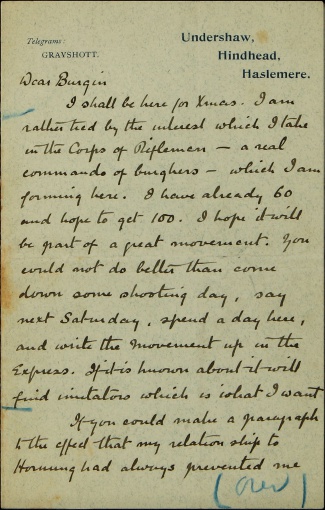 Telegrams:
GRAYSHOTT.
Undershaw,
Hindhead,
Haslemere.
Dear Burgin
I shall be here for Xmas. I am
rather tied by the interest which I take
in the Corps of Riflemen – a real
commando of burghers – which I am
forming here. I have already 60
and hope to get 100. I hope it will
be part of a great movement. You
could not do better than come
down some shooting day, say
next Saturday, spend a day here,
and write the movement up in the
Express. If it is known about it will
find imitators which is what I want
If you could make a paragraph
to the effect that my relationship to
Hornung had always prevented me
(over)